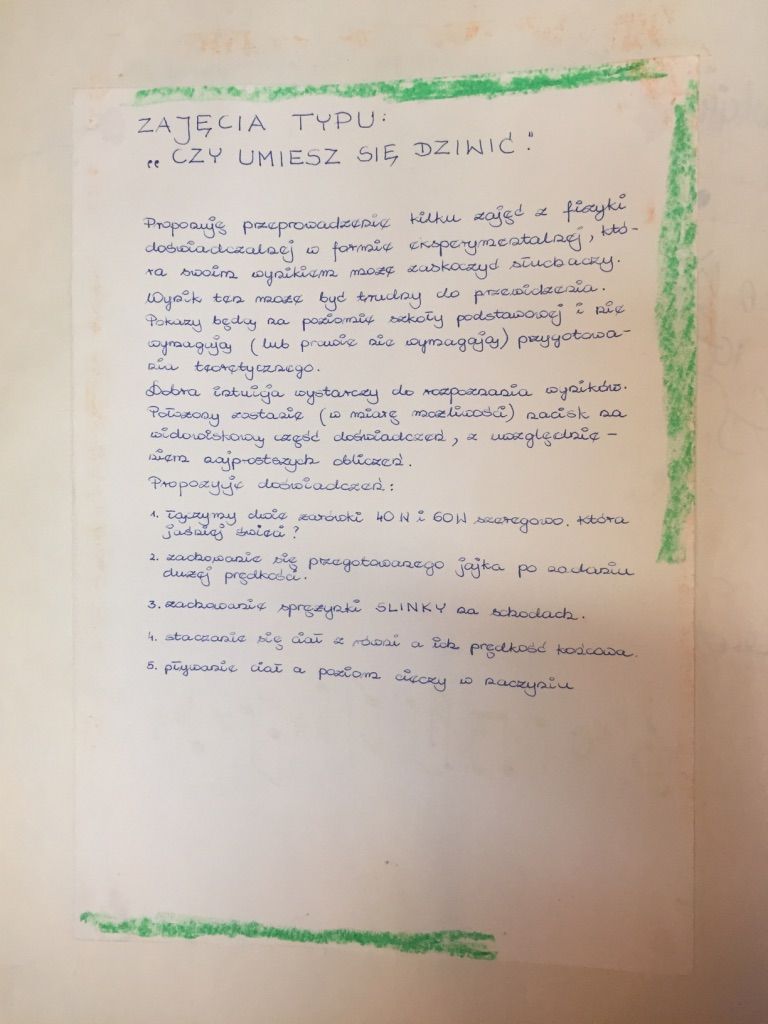 ZAJĘCIA TYPU:
„CZY UMIESZ SIĘ DZIWIĆ".
Proponuję przeprowadzenie kilku zajęć z fizyki
doświadczalnej w formie eksperymentalnej, któ-
ra swoim wynikiem może zaskoczyć słuchaczy.
Wynik ten może być trudny do przewidzenia.
Pokazy będą na poziomie szkoły podstawowej i nie
wymagają (lub prawie nie wymagają) przygotowa-
nia teoretycznego.
Dobra intuicja wystarczy do rozpoznania wyników.
Położony zostanie (w miarę możliwości) nacisk na
widowiskową część doświadczeń, z uwzględnie-
niem najprostszych obliczeń.
Propozycje doświadczeń:
1. łączymy dwie żarówki 40 W i 60 W szeregowo. Która
jaśniej świeci?
2. zachowanie się przegotowanego jajka po nadaniu
dużej prędkości.
3. zachowanie sprężynki SLINKY na schodach.
4. staczanie się ciał z równi a ich prędkość końcowa.
5. pływanie ciał a poziom cieczy w naczyniu